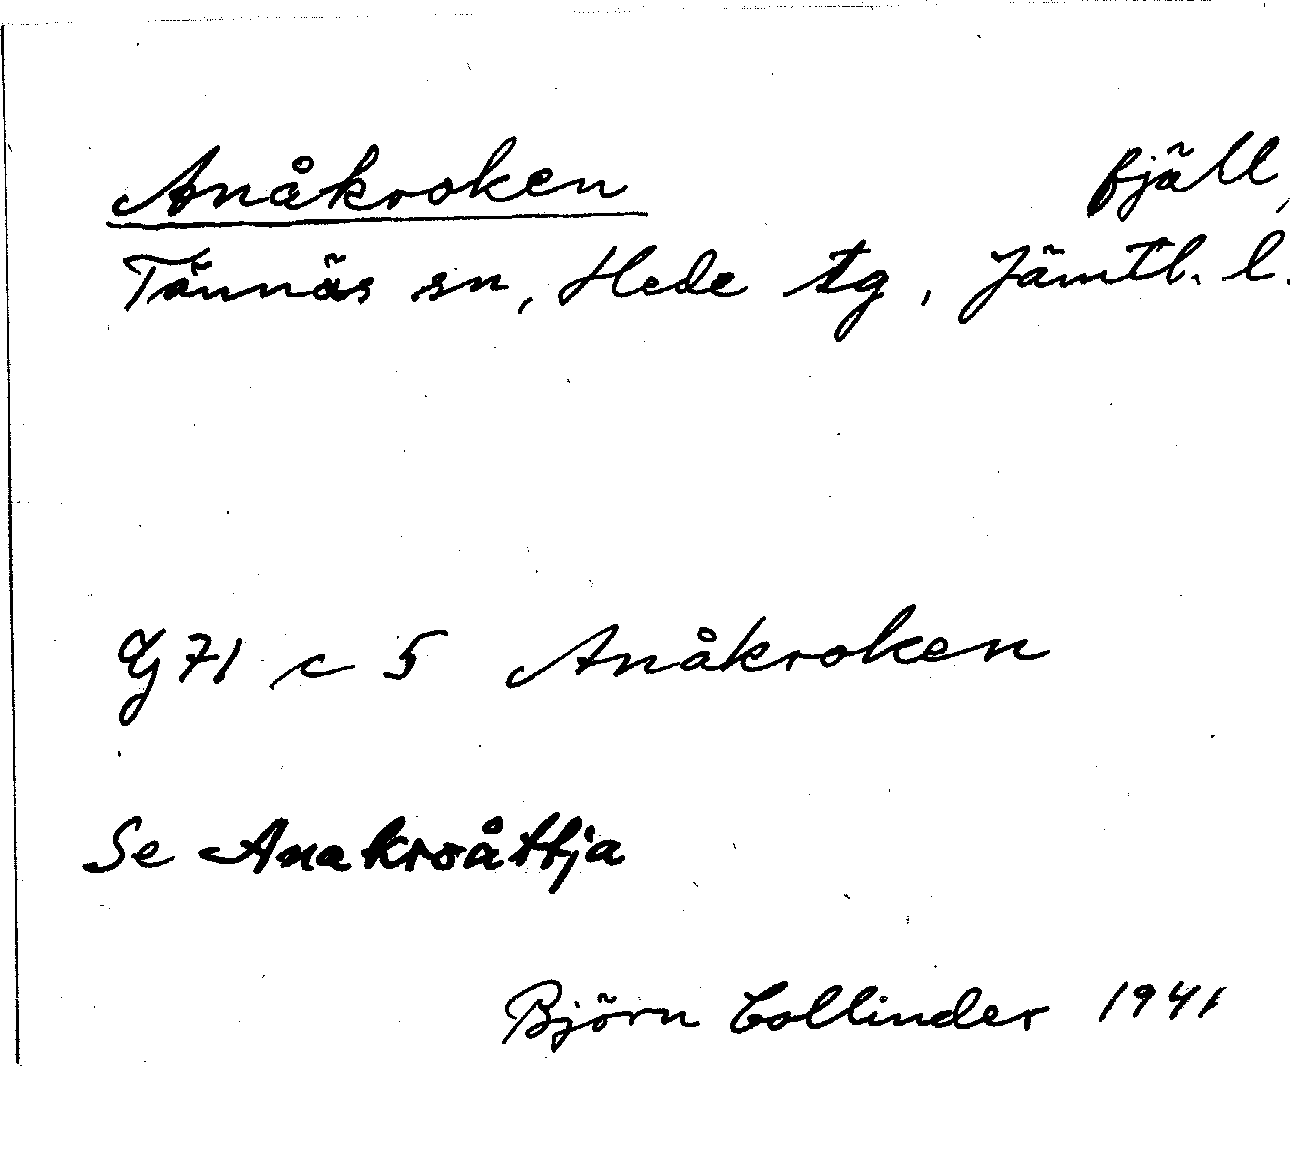 Anåkroken fjäll,
Tännäs sn, Hede tg, Jämtl. l.
G 71 c 5 Anåkroken
Se Anakroåttja
Björn Collinder 1941